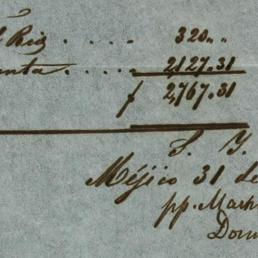 Rig . . . . 320.,
nta . . . . 2127.31
f 2,767.31
S. Y.
Méjico 31 de
pp. Mach
Dom